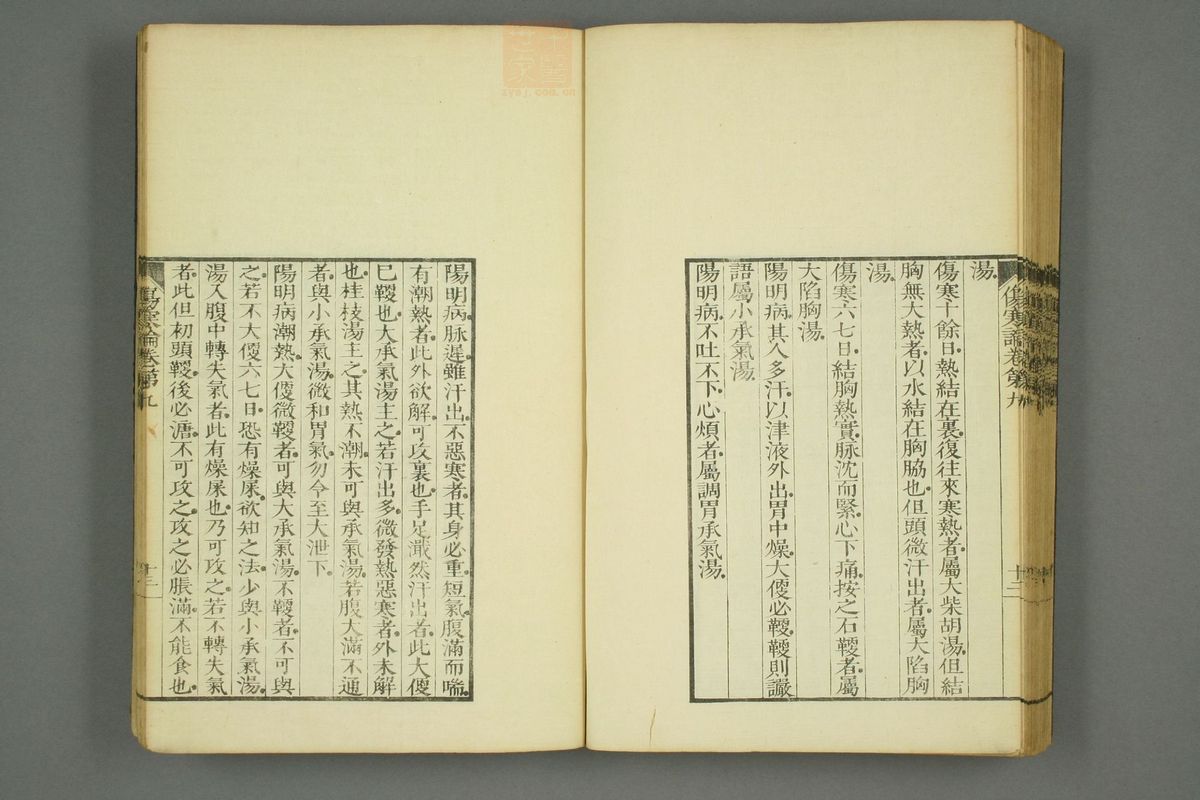 湯
傷寒十餘日熱結在裏復往來寒熱者屬大柴胡湯但結
胸無大熱者以水結在胸脇也但頭微汗出者屬大陷胸
湯
傷寒六七日結胸熱實脉沈而緊心下痛按之石鞕者屬
大陷胸湯
陽明病其人多汗以津液外出胃中燥大便必鞕鞕則讝
語屬小承氣湯
陽明病不吐不下心煩者屬調胃承氣湯
陽明病脉遲雖汗出不惡寒者其身必重短氣腹滿而喘
有潮熱者此外欲解可攻裏也手足濈然汗出者此大便
已鞕也大承氣湯主之若汗出多微發熱惡寒者外未解
也桂枝湯主之其熱不潮未可與承氣湯若腹大滿不通
者與小承氣湯微和胃氣勿令至大泄下
陽明病潮熱大便微鞕者可與大承氣湯不鞕者不可與
之若不大便六七日恐有燥屎欲知之法少與小承氣湯
湯入腹中轉失氣者此有燥屎也乃可攻之若不轉失氣
者此但初頭鞕後必溏不可攻之攻之必脹滿不能食也
傷寒論卷第九
十二
傷寒論卷第九
十三
zysj.com.cn